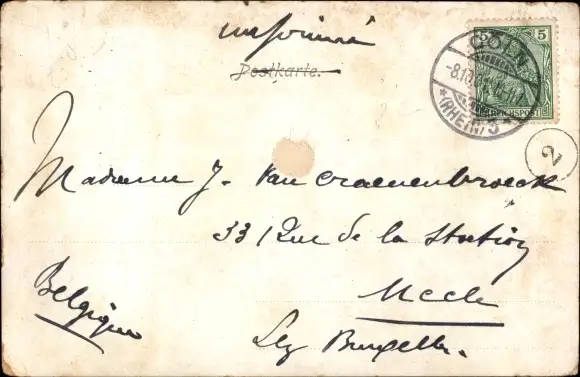 imprimé
Postkarte.
5 5
REICHSPOST
CÖLN
(RHEIN) 3
2
Madame J. Van Craenenbroeck
33 Rue de la Station
Uccle
Lez Bruxelles.
Belgique